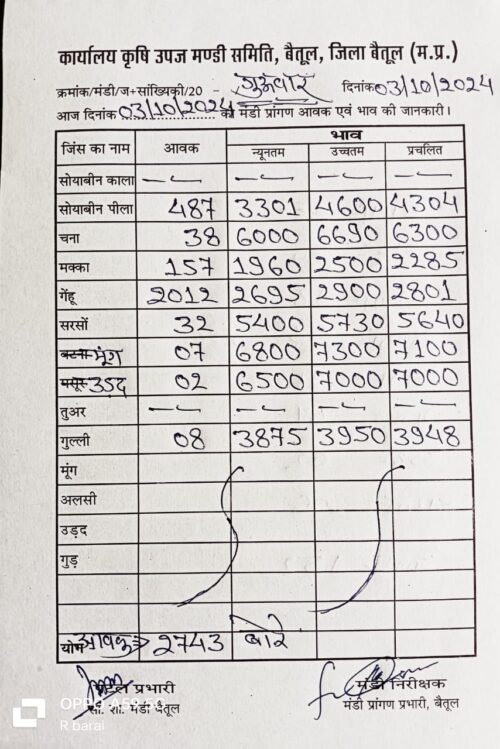 कार्यालय कृषि उपज मण्डी समिति, बैतूल, जिला बैतूल (म.प्र.)
क्रमांक/मंडी/ज+सांख्यिकी/20 - गुरूवार दिनांक 03/10/2024
आज दिनांक 03/10/2024 को मंडी प्रांगण आवक एवं भाव की जानकारी।
जिंस का नाम आवक भाव
न्यूनतम उच्चतम प्रचलित
सोयाबीन काला -- -- -- --
सोयाबीन पीला 487 3301 4600 4304
चना 38 6000 6690 6300
मक्का 157 1960 2500 2285
गेंहू 2012 2695 2900 2801
सरसों 32 5400 5730 5640
बटना मूंग 07 6800 7300 7100
मसूर उड़द 02 6500 7000 7000
तुअर -- -- -- --
गुल्ली 08 3875 3950 3948
मूंग
अलसी
उड़द
गुड़
योग आवक => 2743 बोरे
प्रभारी मंडी निरीक्षक
मंडी बैतूल मंडी प्रांगण प्रभारी, बैतूल
OPPO A59 5G
R barai